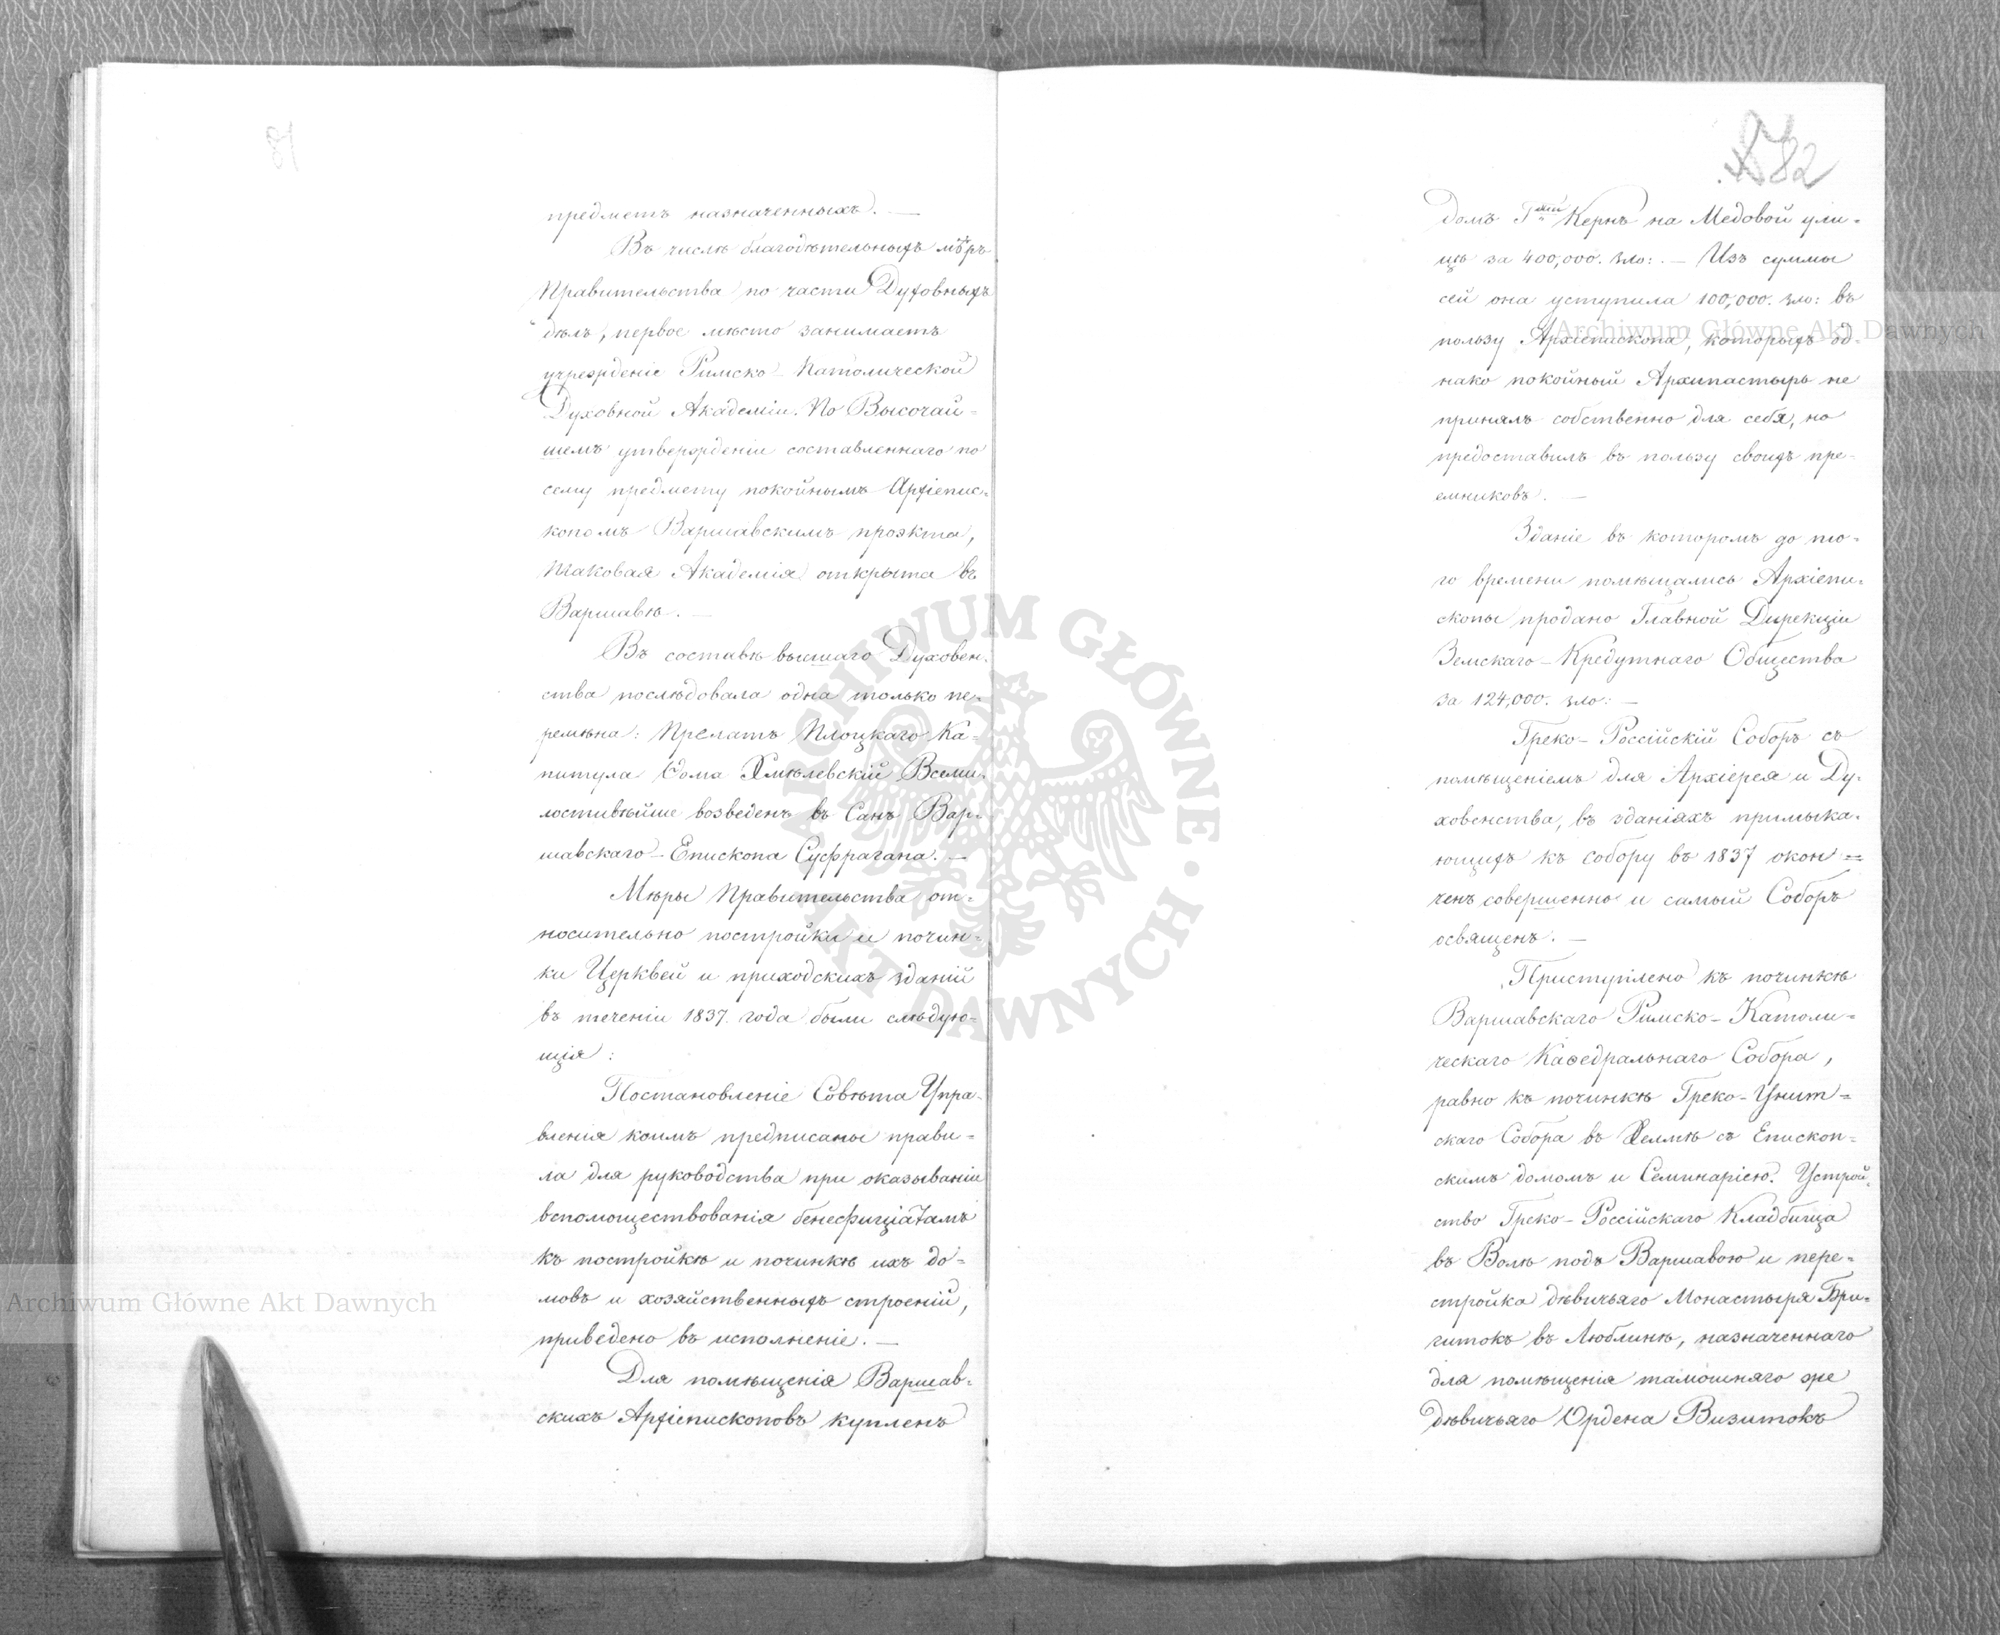 предметъ назначенныхъ. —
Въ числѣ благодѣтельныхъ мѣръ
Правительства по части Духовныхъ
дѣлъ, первое мѣсто занимаетъ
учрежденіе Римско-Католической
Духовной Академіи. По Высочай-
шемъ утвержденіи составленнаго по
сему предмету покойнымъ Архіепис-
копомъ Варшавскимъ проэкта,
таковая Академія открыта въ
Варшавѣ. —
Въ составѣ высшаго Духовен-
ства послѣдовала одна только пе-
ремѣна: Прелатъ Плоцкаго Ка-
питула Ѳома Хмѣлевскій Всеми-
лостивѣйше возведенъ въ Санъ Вар-
шавскаго-Епископа Суффрагана. —
Мѣры Правительства от-
носительно постройки и почин-
ки Церквей и приходскихъ зданій
въ теченіи 1837. года были слѣдую-
щія:
Постановленіе Совѣта Упра-
вленія коимъ предписаны прави-
ла для руководства при оказываніи
вспомоществованія бенефиціатамъ
къ постройкѣ и починкѣ ихъ до-
мовъ и хозяйственныхъ строеній,
приведено въ исполненіе. —
Для помѣщенія Варшав-
скихъ Архіепископовъ купленъ
82
домъ Г-жи Кернъ на Медовой ули-
цѣ за 400,000. зло: — Изъ суммы
сей она уступила 100,000. зло: въ
пользу Архіепископа, которыхъ од-
нако покойный Архипастырь не
принялъ собственно для себя, но
предоставилъ въ пользу своихъ пре-
емниковъ. —
Зданіе въ которомъ до то-
го времени помѣщались Архіепи-
скопы продано Главной Дирекціи
Земскаго-Кредутнаго Общества
за 124,000. зло: —
Греко-Россійскій Соборъ съ
помѣщеніемъ для Архіерея и Ду-
ховенства, въ зданіяхъ примыка-
ющихъ къ собору въ 1837 окон=
ченъ совершенно и самый Соборъ
освященъ. —
Приступлено къ починкѣ
Варшавскаго Римско-Католи-
ческаго Каѳедральнаго Собора,
равно къ починкѣ Греко-Унит-
скаго Собора въ Хелмѣ съ Епископ-
скимъ домомъ и Семинаріею. Устрой-
ство Греко-Россійскаго Кладбища
въ Волѣ подъ Варшавою и пере-
стройка дѣвичьяго Монастыря Бри-
гитокъ въ Люблинѣ, назначеннаго
для помѣщенія тамошняго же
дѣвичьяго Ордена Визитокъ
Archiwum Główne Akt Dawnych
Archiwum Główne Akt Dawnych
ARCHIWUM GŁÓWNE · AKT DAWNYCH ·